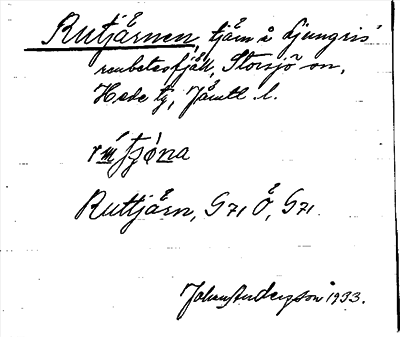 Rutjärnen, tjärn å Ljungris
renbetesfjäll, Storsjö sn,
Hede tg, Jämtl. l.
Ruttjärn, G71 Ö, G71
Johan Anderzson 1933.